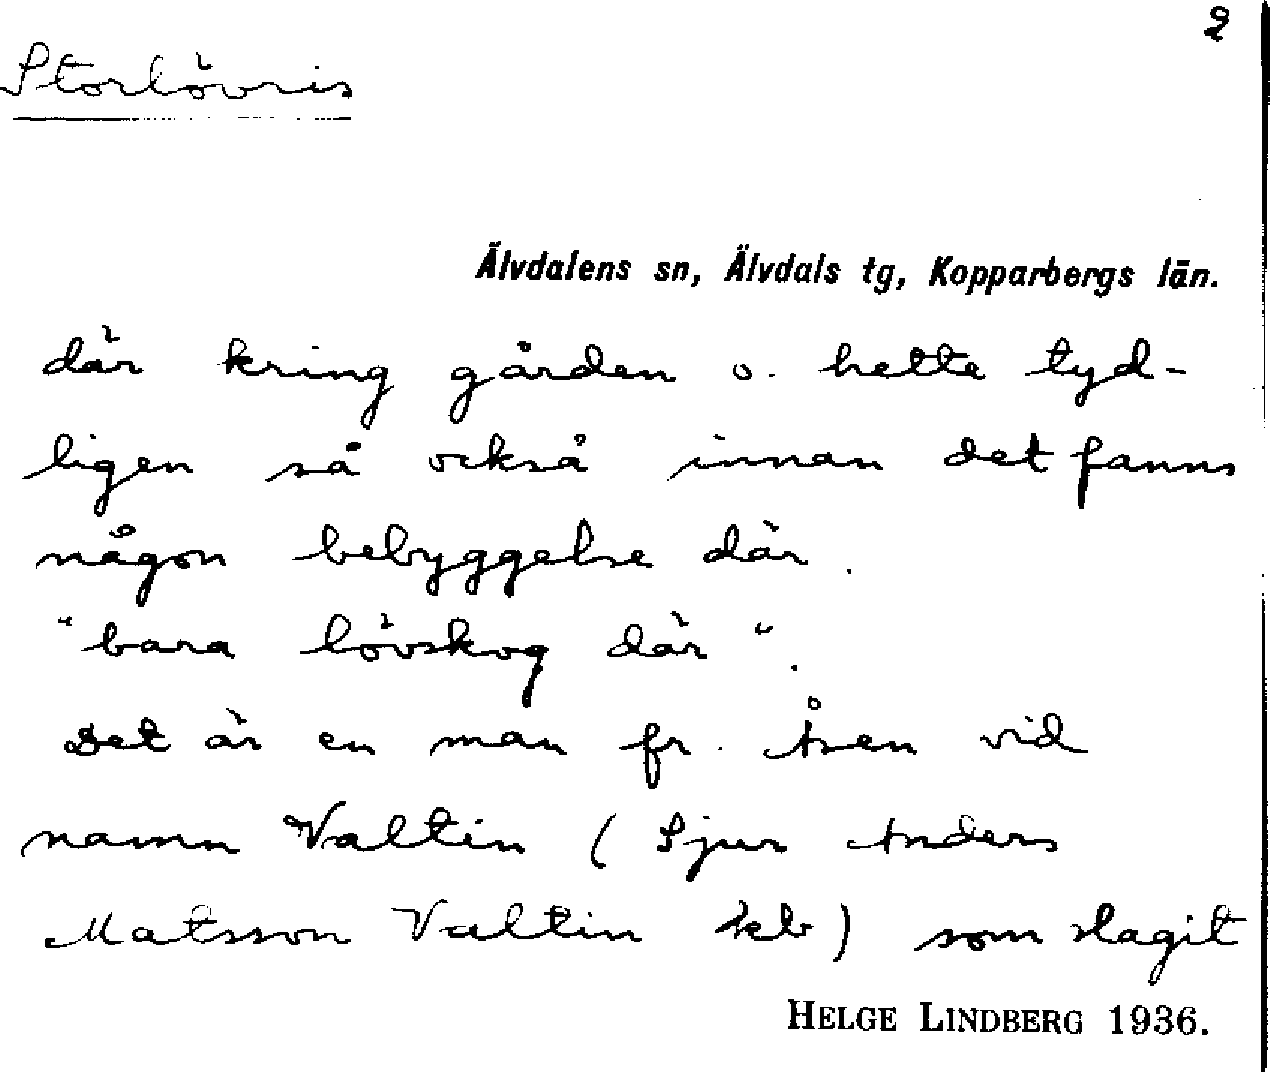 2
Storlövris
Älvdalens sn, Älvdals tg, Kopparbergs län.
där kring gården o. hette tyd-
ligen så också innan det fanns
någon bebyggelse där.
"bara lövskog där".
Det är en man fr. Åsen vid
namn Valtin (Sjur Anders
Matsson Valtin kb) som slagit
HELGE LINDBERG 1936.